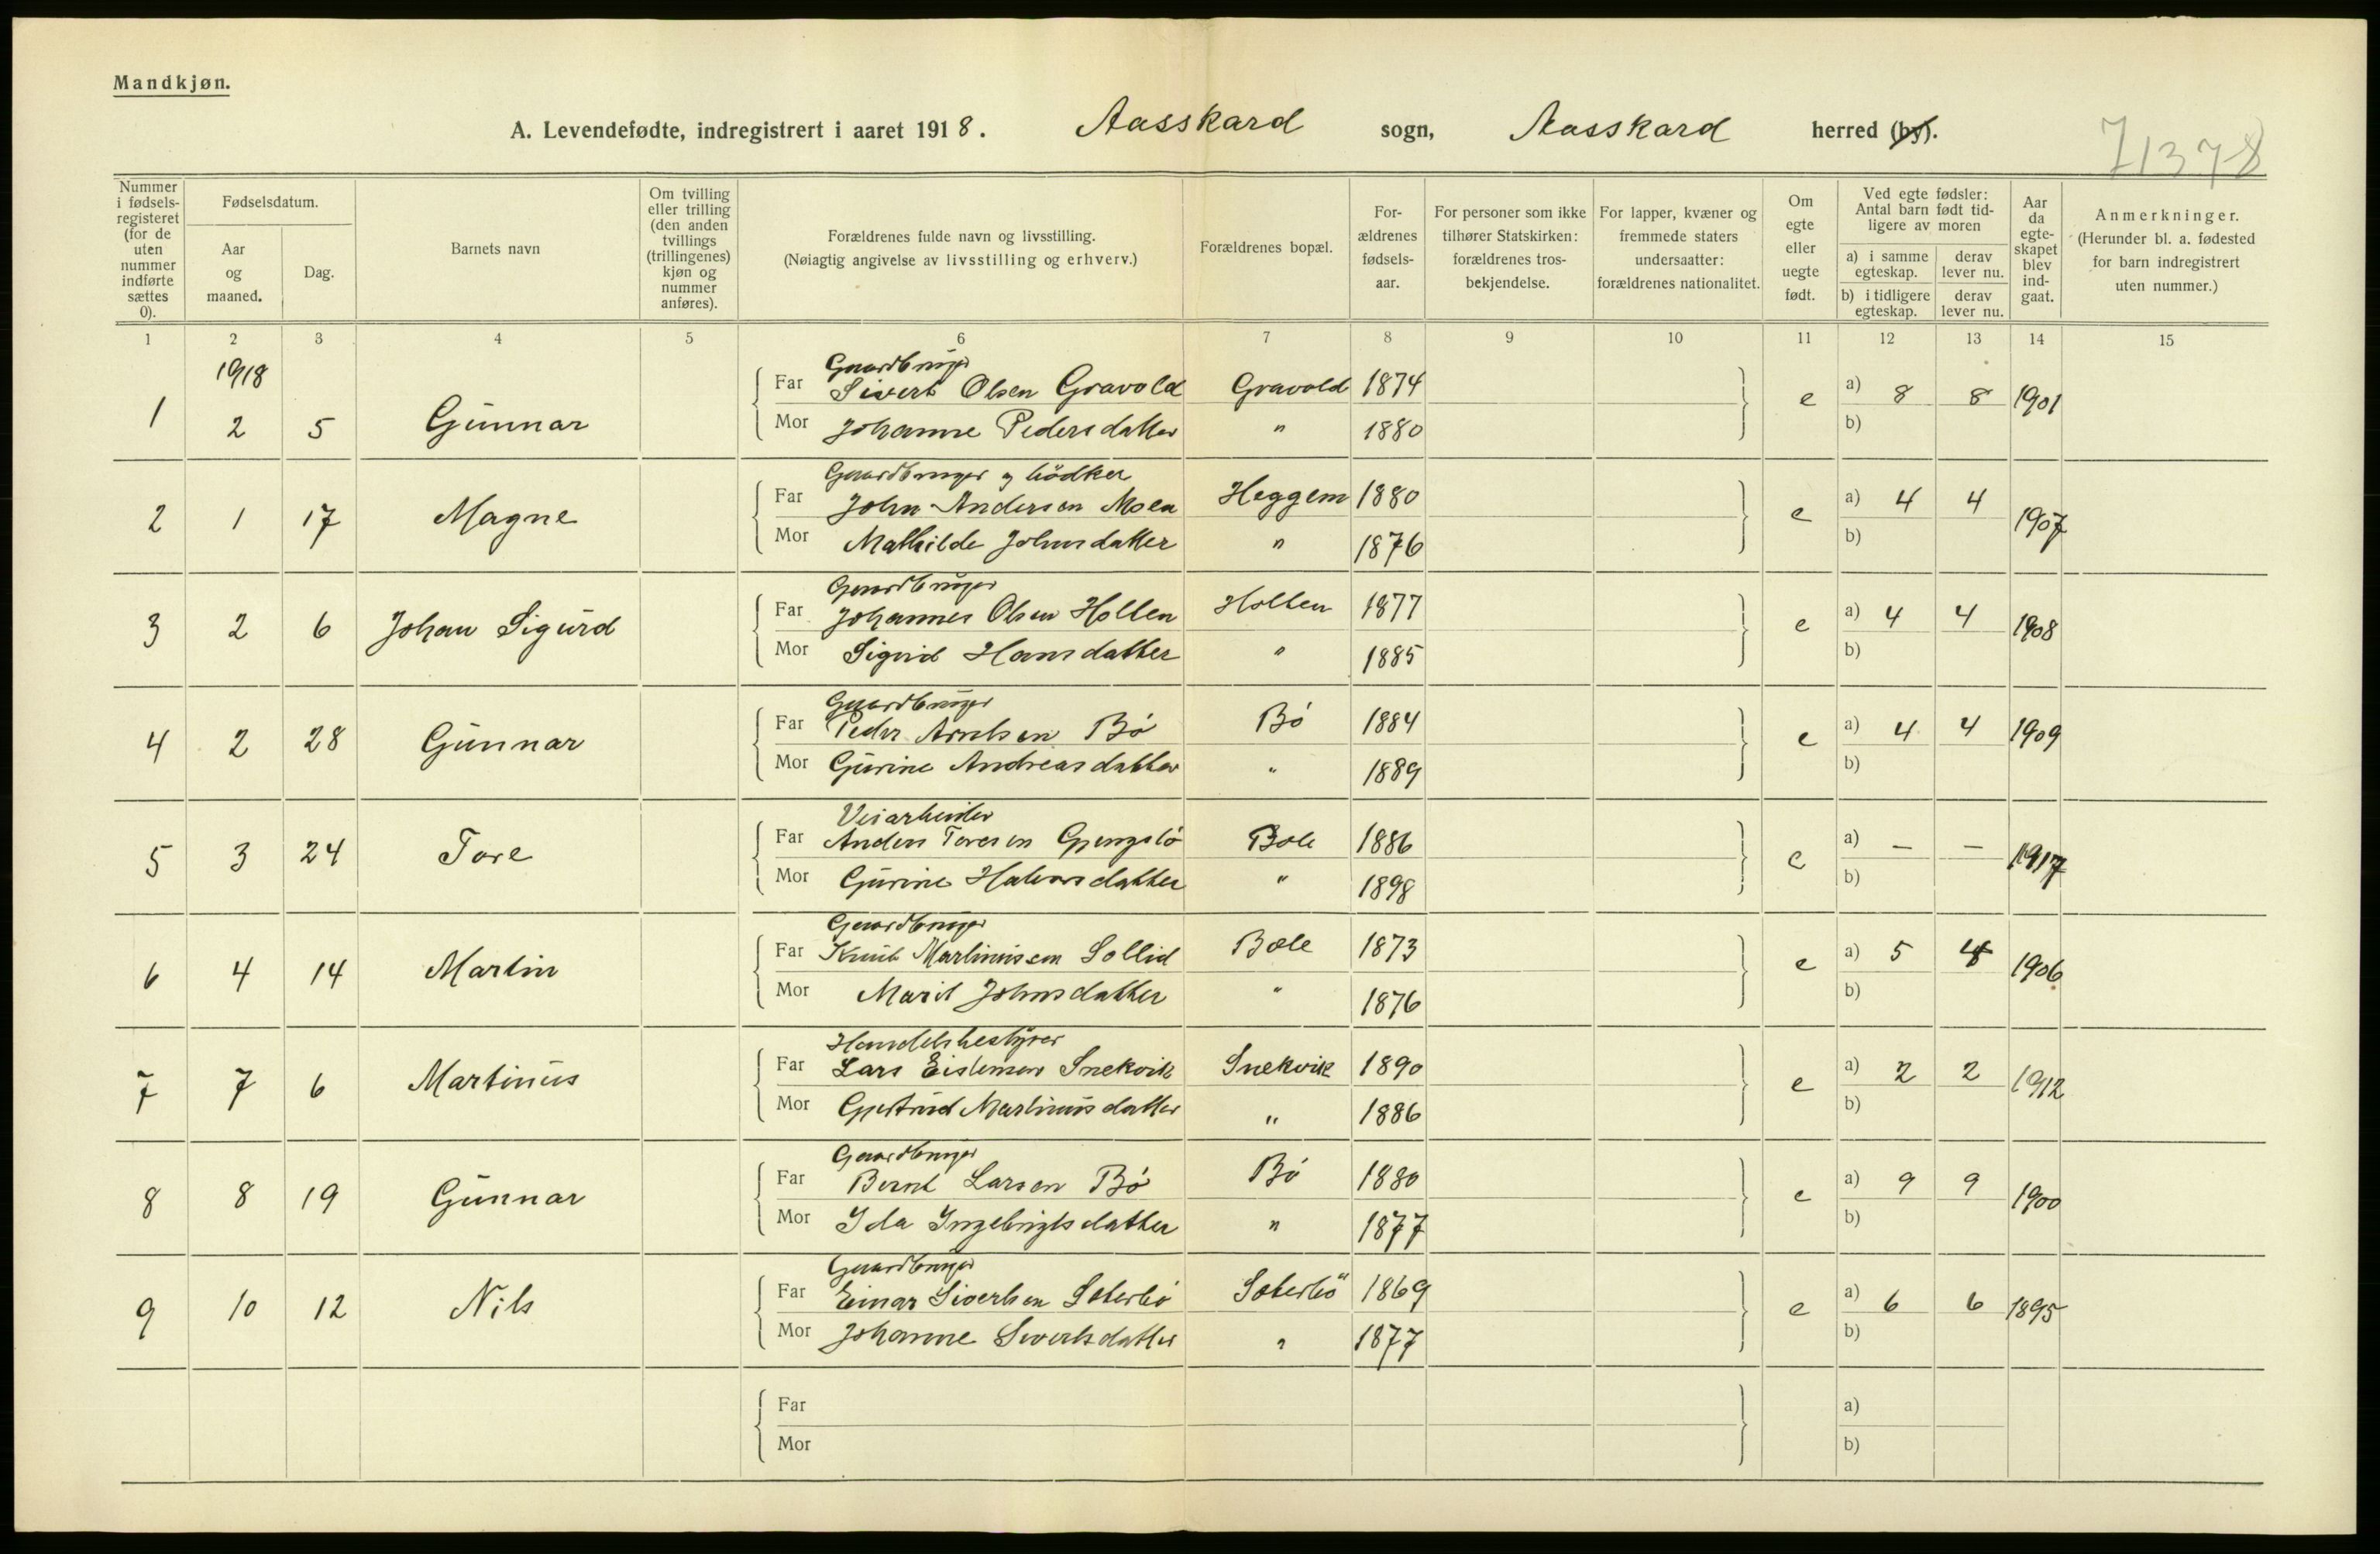 Mandkjøn.
A. Levendefødte, indregistrert i aaret 1918. Aasskard sogn, Aasskard herred (by).
71378
Nummer i fødsels-registeret (for de uten nummer indførte sættes 0).
Fødselsdatum.
Aar og maaned.
Dag.
Barnets navn
Om tvilling eller trilling (den anden tvillings (trillingenes) kjøn og nummer anføres).
Forældrenes fulde navn og livsstilling. (Nøiagtig angivelse av livsstilling og erhverv.)
Forældrenes bopæl.
For-ældrenes fødsels-aar.
For personer som ikke tilhører Statskirken: forældrenes tros-bekjendelse.
For lapper, kvæner og fremmede staters undersaatter: forældrenes nationalitet.
Om egte eller uegte født.
Ved egte fødsler: Antal barn født tid-ligere av moren
a) i samme egteskap. derav lever nu.
b) i tidligere egteskap. derav lever nu.
Aar da egte-skapet blev ind-gaat.
Anmerkninger. (Herunder bl. a. fødested for barn indregistrert uten nummer.)
1 2 3 4 5 6 7 8 9 10 11 12 13 14 15
1918
Gaardbruger
1 2 5 Gunnar Far Sivert Olsen Gravold Gravold 1874 e a) 8 8 1901
Mor Johanne Pedersdatter " 1880 b)
Gaardbruger og bödker
2 1 17 Magne Far John Andersen Moen Heggem 1880 e a) 4 4 1907
Mor Mathilde Johnsdatter " 1876 b)
Gaardbruger
3 2 6 Johan Sigurd Far Johannes Olsen Holten Holten 1877 e a) 4 4 1908
Mor Sigrid Hansdatter " 1885 b)
Gaardbruger
4 2 28 Gunnar Far Peder Arntsen Bö Bö 1884 e a) 4 4 1909
Mor Gurine Andreasdatter " 1889 b)
Veiarbeider
5 3 24 Tore Far Anders Toresen Bole 1886 e a) – – 1917
Mor Gurine Halvorsdatter " 1898 b)
Gaardbruger
6 4 14 Martin Far Knut Martinussen Sollid Bole 1873 e a) 5 4 1906
Mor Marit Johnsdatter " 1876 b)
Handelsbestyrer
7 7 6 Martinus Far Lars Snekvik Snekvik 1890 e a) 2 2 1912
Mor Gjertrud Martinusdatter " 1886 b)
Gaardbruger
8 8 19 Gunnar Far Bernt Larsen Bö Bö 1880 e a) 9 9 1900
Mor Ida Ingebrigtsdatter " 1877 b)
Gaardbruger
9 10 12 Nils Far Einar Sivertsen Söterbö Söterbö 1869 e a) 6 6 1895
Mor Johanne Sivertsdatter " 1877 b)
Far a)
Mor b)